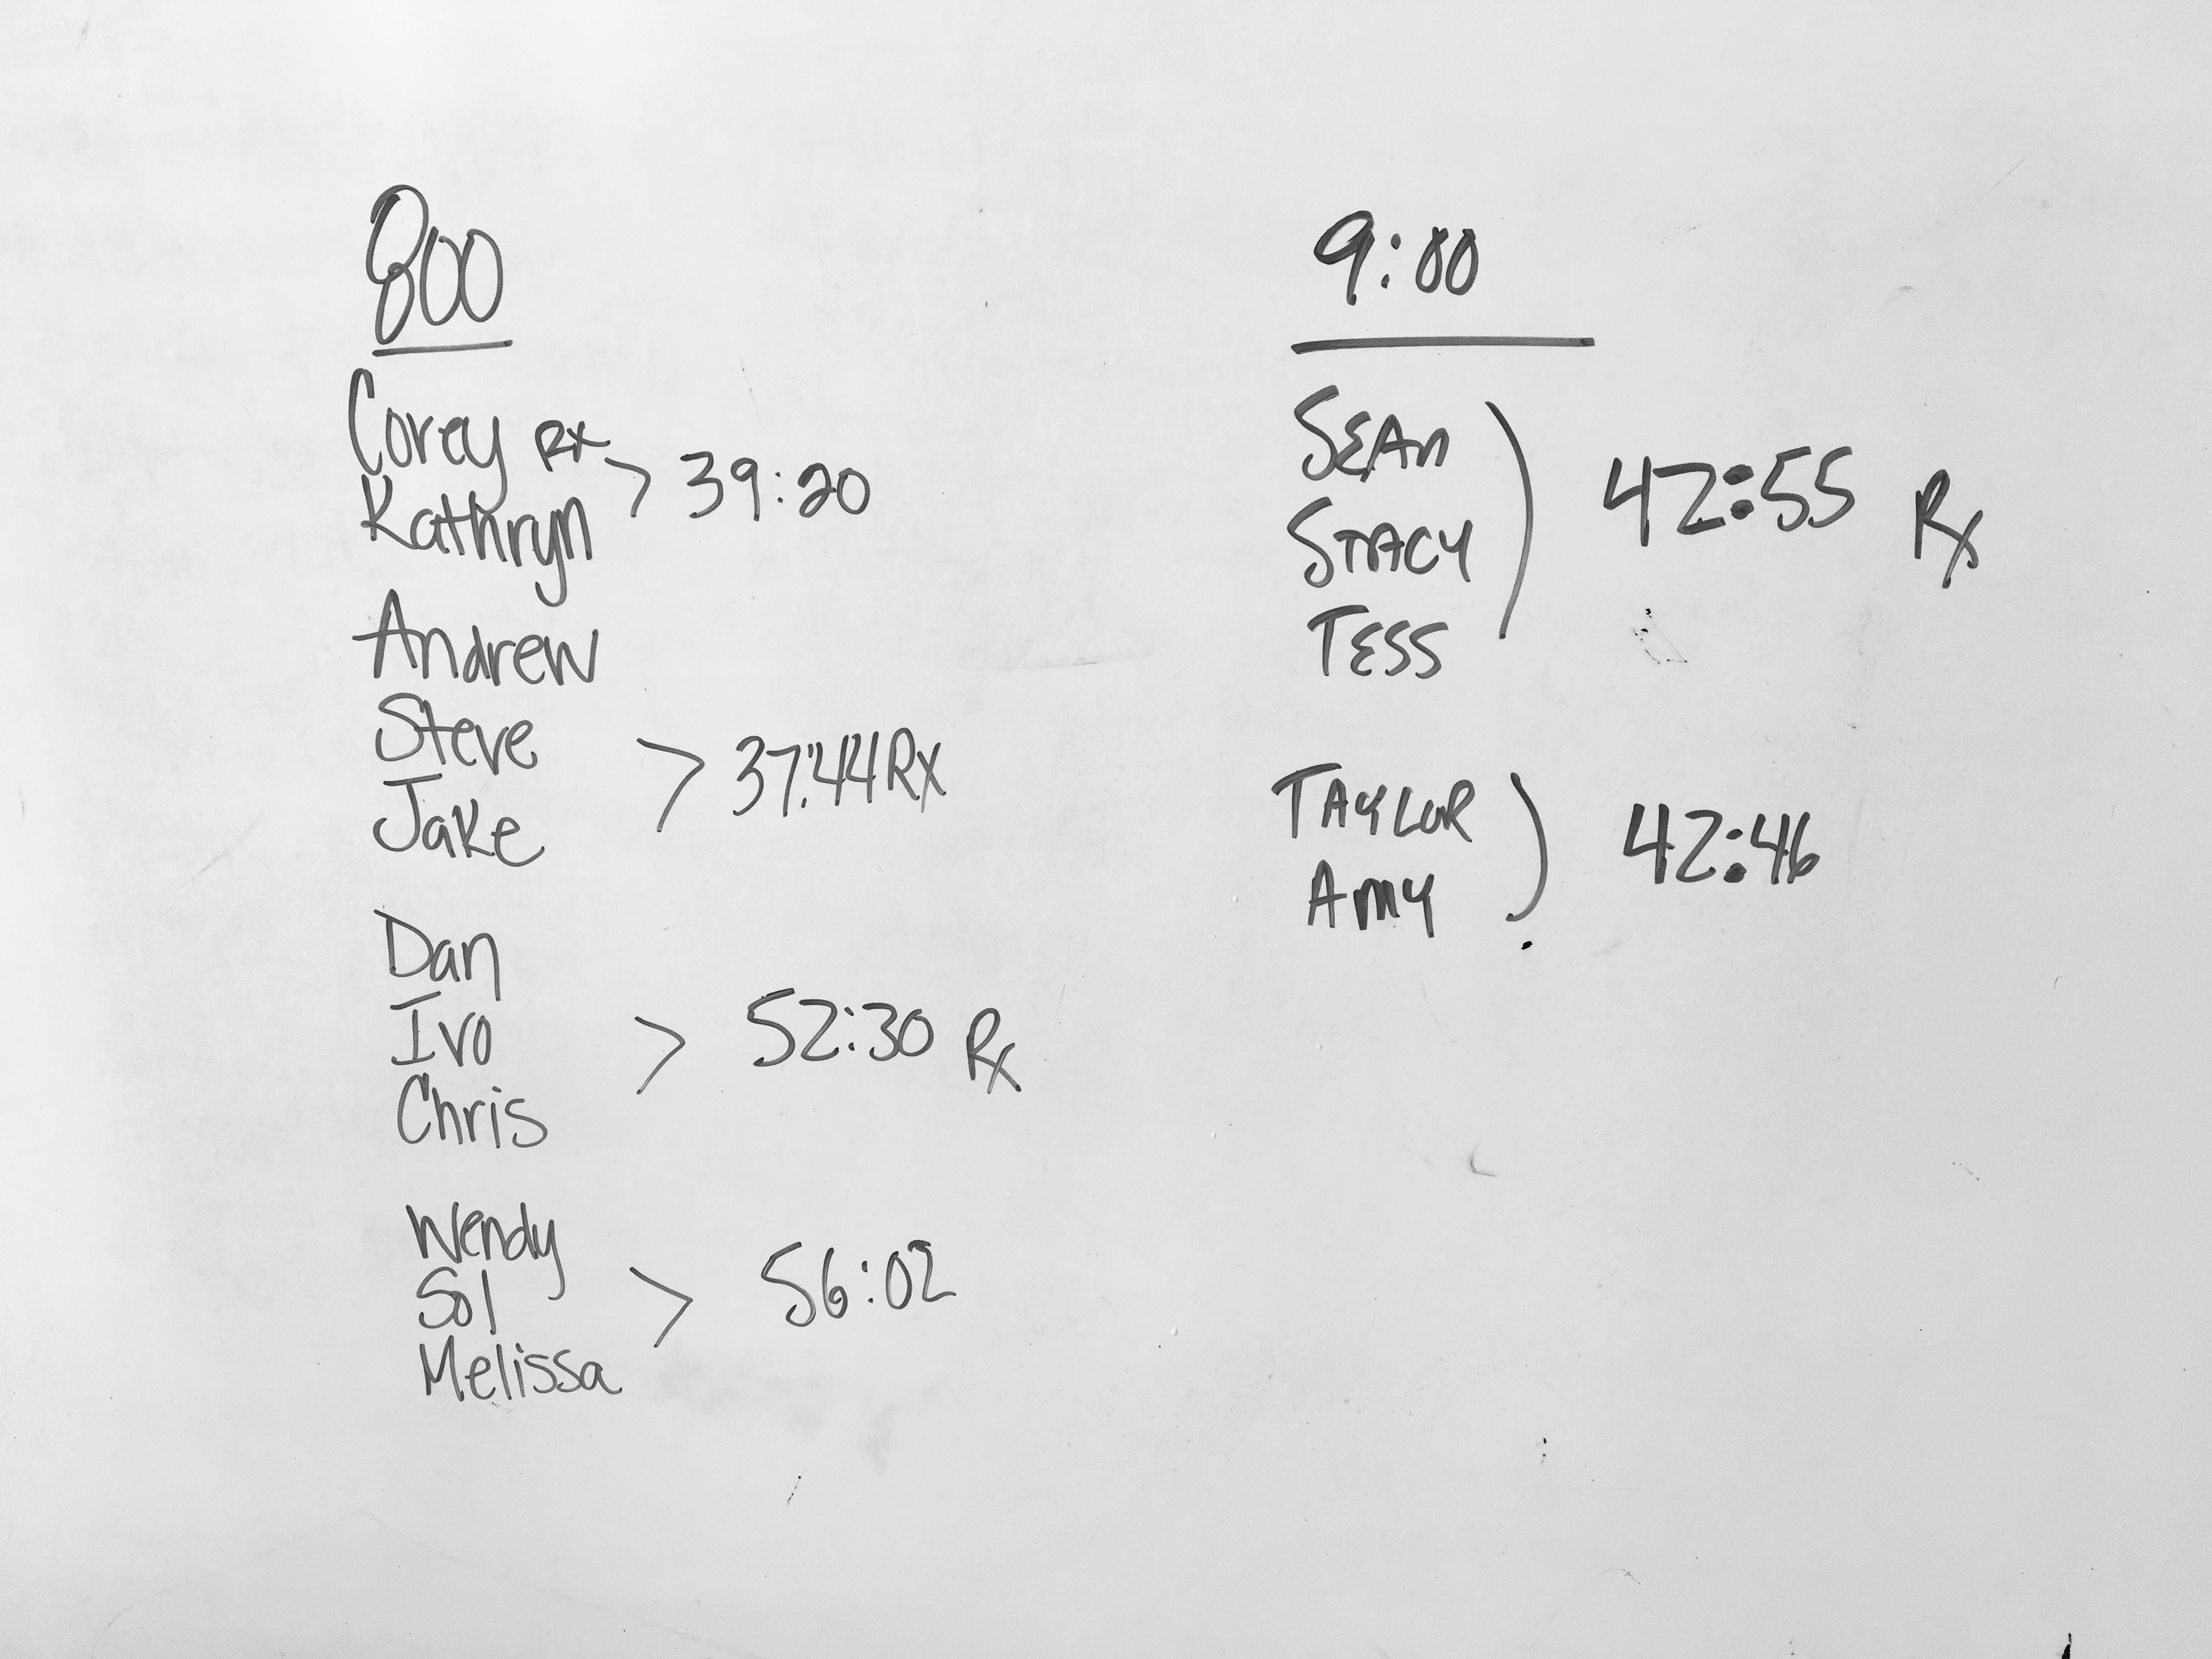 800
Corey Rx
Kathryn > 39:20
Andrew
Steve
Jake > 37:44 Rx
Dan
Ivo > 52:30 Rx
Chris
Wendy
Sol > 56:02
Melissa
9:00
SEAN
STACY ) 42:55 Rx
TESS
TAYLOR
AMY ) 42:46